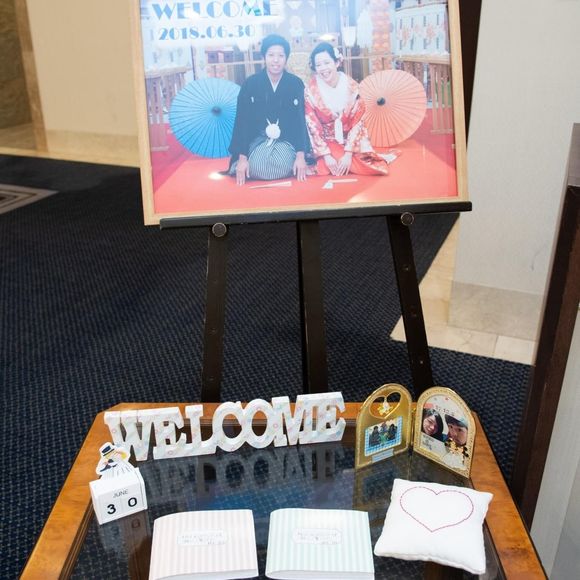 WELCOME
2018.06.30
WELCOME
JUNE
3 0